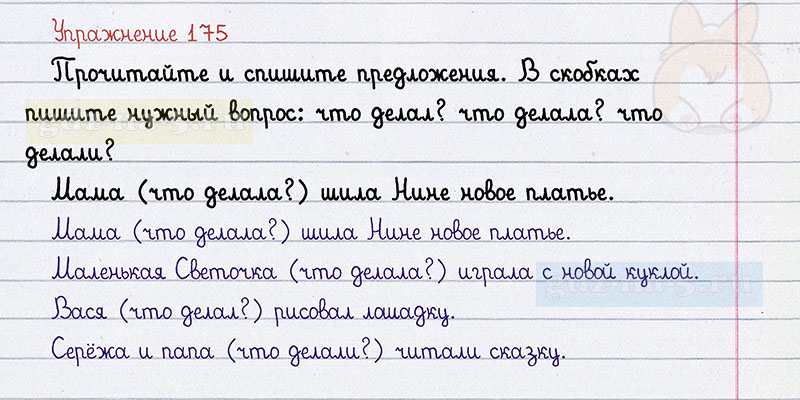 Упражнение 175
Прочитайте и спишите предложения. В скобках
пишите нужный вопрос: что делал? что делала? что
делали?
Мама (что делала?) шила Нине новое платье.
Мама (что делала?) шила Нине новое платье.
Маленькая Светочка (что делала?) играла с новой куклой.
Вася (что делал?) рисовал лошадку.
Серёжа и папа (что делали?) читали сказку.